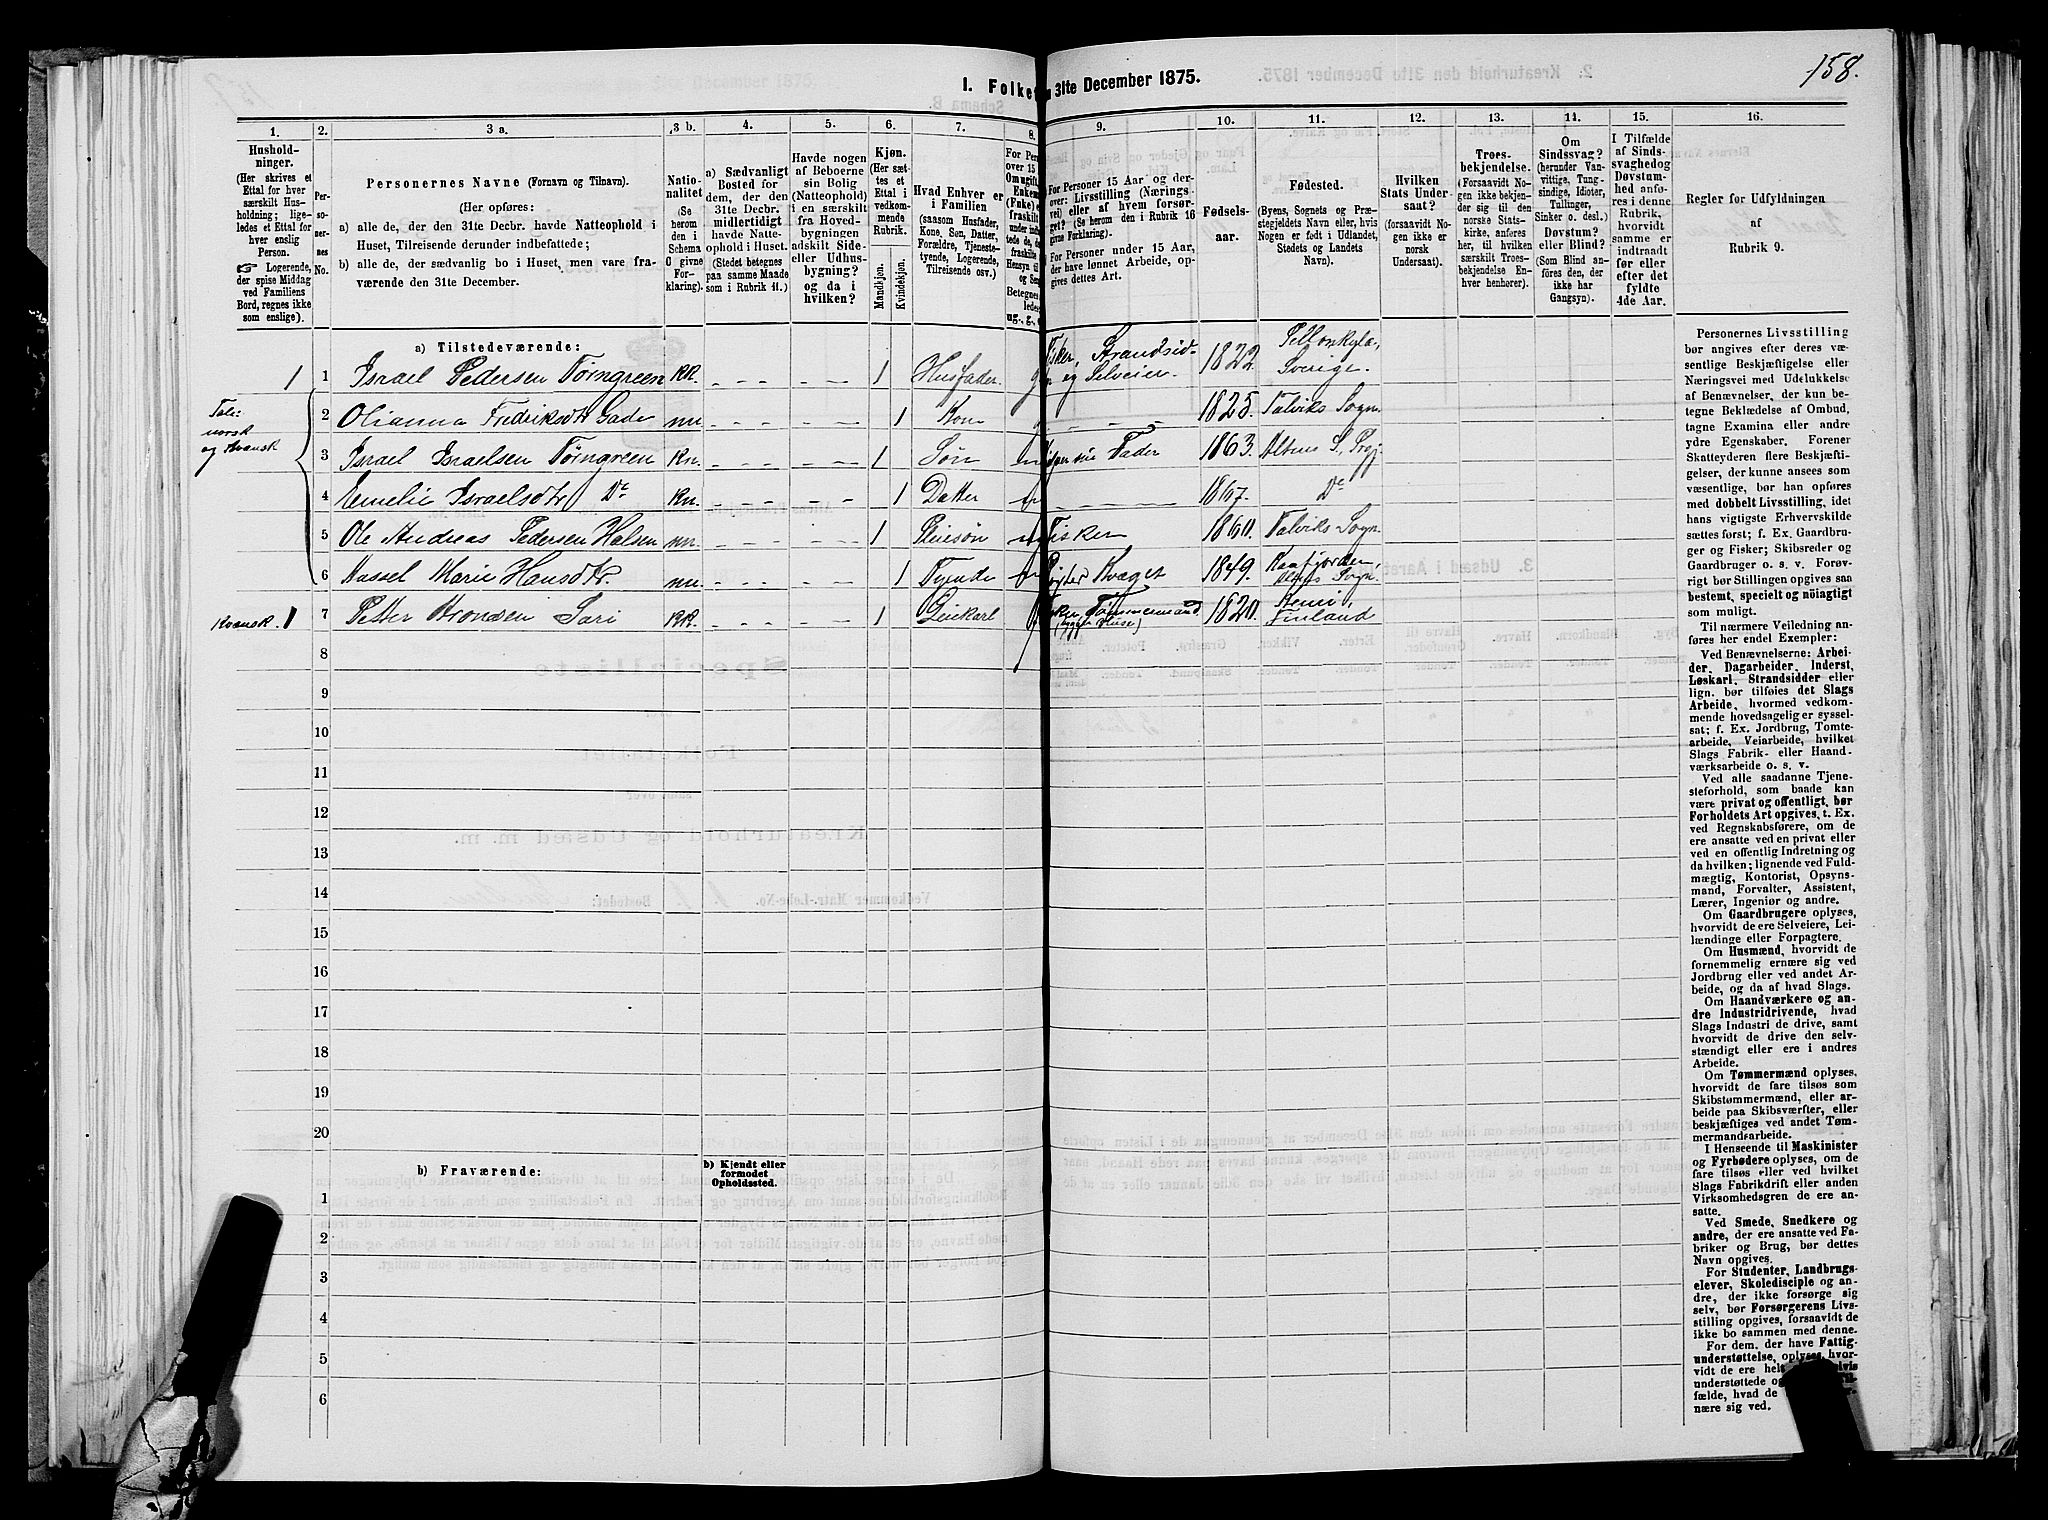 158.
I. Folke
31te December 1875.
1.
2.
3 a.
3 b.
4.
5.
6.
7.
8.
9.
10.
11.
12.
13.
14.
15.
16.
Hushold-
ninger.
(Her skrives et
Ettal for hver
særskilt Hus-
holdning; lige-
ledes et Ettal
for hver enslig
Person.
☞ Logerende,
der spise Middag
ved Familiens
Bord, regnes ikke
som enslige).
Per-
so-
ner-
nes
No.
Personernes Navne (Fornavn og Tilnavn).
(Her opføres:
a) alle de, der den 31te Decbr. havde Natteophold i
Huset, Tilreisende derunder indbefattede;
b) alle de, der sædvanlig bo i Huset, men vare fra-
værende den 31te December.
Natio-
nalitet
(Se
herom
den i
Schema
O givne
For-
klaring).
a) Sædvanligt
Bosted for
dem, der den
31te Decbr.
midlertidigt
havde Natte-
ophold i Huset.
(Stedet betegnes
paa samme Maade
som i Rubrik 11.)
Havde nogen
af Beboerne
sin Bolig
(Natteophold)
i en særskilt
fra Hoved-
bygningen
adskilt Side-
eller Udhus-
bygning?
og da i
hvilken?
Kjøn.
(Her sæt-
tes et
Ettal i
vedkom-
mende
Rubrik.
Mandkjøn.
Kvindekjøn.
Hvad Enhver er
i Familien
(saasom Husfader,
Kone, Søn, Datter,
Forældre, Tjeneste-
tyende, Logerende,
Tilreisende osv.)
For Personer 15 Aar og der-
over: Livsstilling (Nærings-
vei) eller af hvem forsør-
get? (Se herom den i Rubrik 16
givne Forklaring).
For Personer under 15 Aar,
der have lønnet Arbeide, op-
gives dettes Art.
Fødsels-
aar.
Fødested.
(Byens, Sognets og Præ-
stegjeldets Navn eller, hvis
Nogen er født i Udlandet,
Stedets og Landets
Navn).
Hvilken
Stats Under-
saat?
(forsaavidt No-
gen ikke er
norsk
Undersaat).
Troes-
bekjendelse.
(Forsaavidt No-
gen ikke bekjen-
der sig til den
norske Stats-
kirke, anføres
her, til hvilken
særskilt Troes-
bekjendelse En-
hver henhører).
Om
Sindssvag?
(herunder Van-
vittige, Tung-
sindige, Idioter,
Tullinger,
Sinker o. desl.)
Døvstum?
eller Blind?
(Som Blind an-
føres den, der
ikke har
Gangsyn).
I Tilfælde
af Sinds-
svaghed og
Døvstum-
hed anfø-
res i denne
Rubrik,
hvorvidt
samme er
indtraadt
før eller
efter det
fyldte
4de Aar.
Regler for Udfyldningen
af
Rubrik 9.
a) Tilstedeværende:
1 1 Israel Pedersen Törngreen KK. 1 Husfader Fisker, Strandsid- og Selveier. 1822 Sverige.
Tale:
norsk
og Kvansk
2 Olianna Fredriksdtr Gade nn. 1 Kone 1825. Talviks Sogn.
3 Israel Israelsen Törngreen Kn. 1 Søn Fader 1863. Altens S.
4 Emelie Israelsdtr Do Kn. 1 Datter 1867. Do
5 Ole Andreas Pedersen Halsen nn. 1 Pleiesøn Fisker 1860. Talviks Sogn.
6 Marie Hansdtr nn. 1 Tyende Kvæget 1849. Kaafjorden, Altens Sogn.
Kvansk. 1 7 Petter KK. 1 Leiekarl Tømmermand (bygger Huse) 1820. Finland
8
9
10
11
12
13
14
15
16
17
18
19
20
b) Fraværende:
b) Kjendt eller
formodet
Opholdssted.
1
2
3
4
5
6
Personernes Livsstilling
bør angives efter deres væ-
sentlige Beskjæftigelse eller
Næringsvei med Udelukkelse
af Benævnelser, der kun be-
tegne Beklædelse af Ombud,
tagne Examina eller andre
ydre Egenskaber. Forener
Skatteyderen flere Beskjæfti-
gelser, der kunne ansees som
væsentlige, bør han opføres
med dobbelt Livsstilling, idet
hans vigtigste Erhvervskilde
sættes først; f. Ex. Gaardbru-
ger og Fisker; Skibsreder og
Gaardbruger o. s. v. Forøv-
rigt bør Stillingen opgives saa
bestemt, specielt og nöiagtigt
som muligt.
Til nærmere Veiledning an-
føres her endel Exempler:
Ved Benævnelserne: Arbei-
der, Dagarbeider, Inderst,
Løskarl, Strandsidder eller
lign. bør tilføies det Slags
Arbeide, hvormed vedkom-
mende hovedsagelig er syssel-
sat; f. Ex. Jordbrug, Tomte-
arbeide, Veiarbeide, hvilket
Slags Fabrik- eller Haand-
værksarbeide o. s. v.
Ved alle saadanne Tjene-
steforhold, som baade kan
være privat og offentligt, bør
Forholdets Art opgives, t. Ex.
ved Regnskabsførere, om de
ere ansatte ved en privat eller
ved en offentlig Indretning og
da hvilken; lignende ved Fuld-
mægtig, Kontorist, Opsyns-
mand, Forvalter, Assistent,
Lærer, Ingeniør og andre.
Om Gaardbrugere oplyses,
hvorvidt de ere Selveiere, Lei-
lændinge eller Forpagtere.
Om Husmænd, hvorvidt de
fornemmelig ernære sig ved
Jordbrug eller ved andet Ar-
beide, og da af hvad Slags.
Om Haandværkere og an-
dre Industridrivende, hvad
Slags Industri de drive, samt
hvorvidt de drive den selv-
stændigt eller ere i andres
Arbeide.
Om Tømmermænd oplyses,
hvorvidt de fare tilsøs som
Skibstømmermænd, eller ar-
beide paa Skibsværfter, eller
beskjæftiges ved andet Tøm-
mermandsarbeide.
I Henseende til Maskinister
og Fyrbødere oplyses, om de
fare tilsøs eller ved hvilket
Slags Fabrikdrift eller anden
Virksomhedsgren de ere an-
satte.
Ved Smede, Snedkere og
andre, der ere ansatte ved Fa-
briker og Brug, bør dettes
Navn opgives.
For Studenter, Landbrugs-
elever, Skoledisciple og an-
dre, der ikke forsørge sig
selv, bør Forsørgerens Livs-
stilling opgives, forsaavidt de
ikke bo sammen med denne.
For dem, der have Fattig-
understøttelse, oplyses, hvor-
vidt de ere
understøttede
fælde, hvad de
nære sig ved.